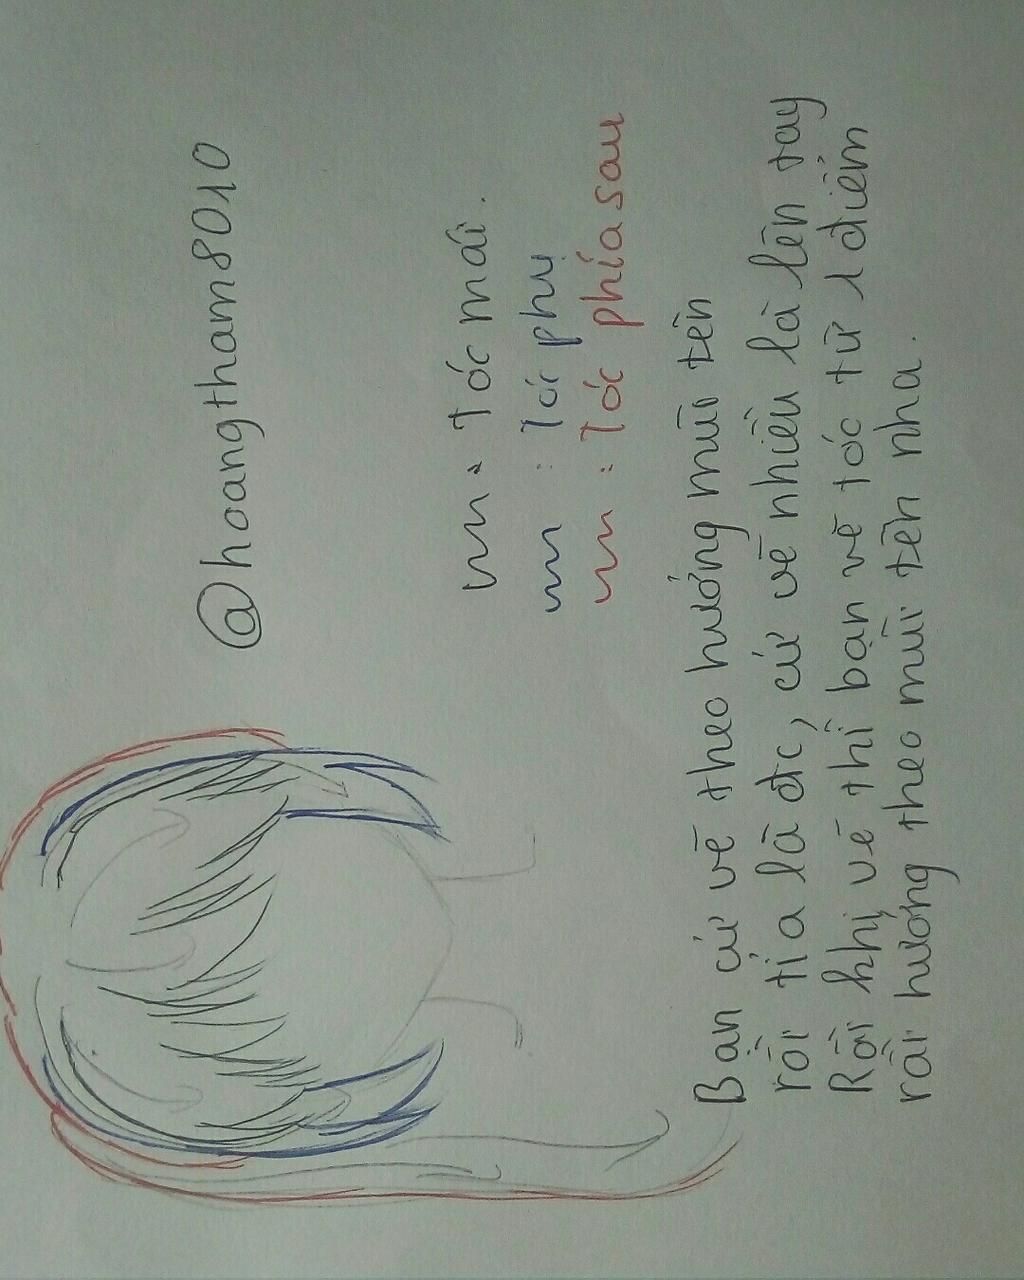 @hoangtham8010
: Tóc mái.
: Tóc phụ
: Tóc phía sau
Bạn cứ vẽ theo hướng mũi tên
rồi tỉa là đc, cứ vẽ nhiều là lên tay
Rồi khi vẽ thì bạn vẽ tóc từ 1 điểm
rồi hướng theo mũi tên nha.